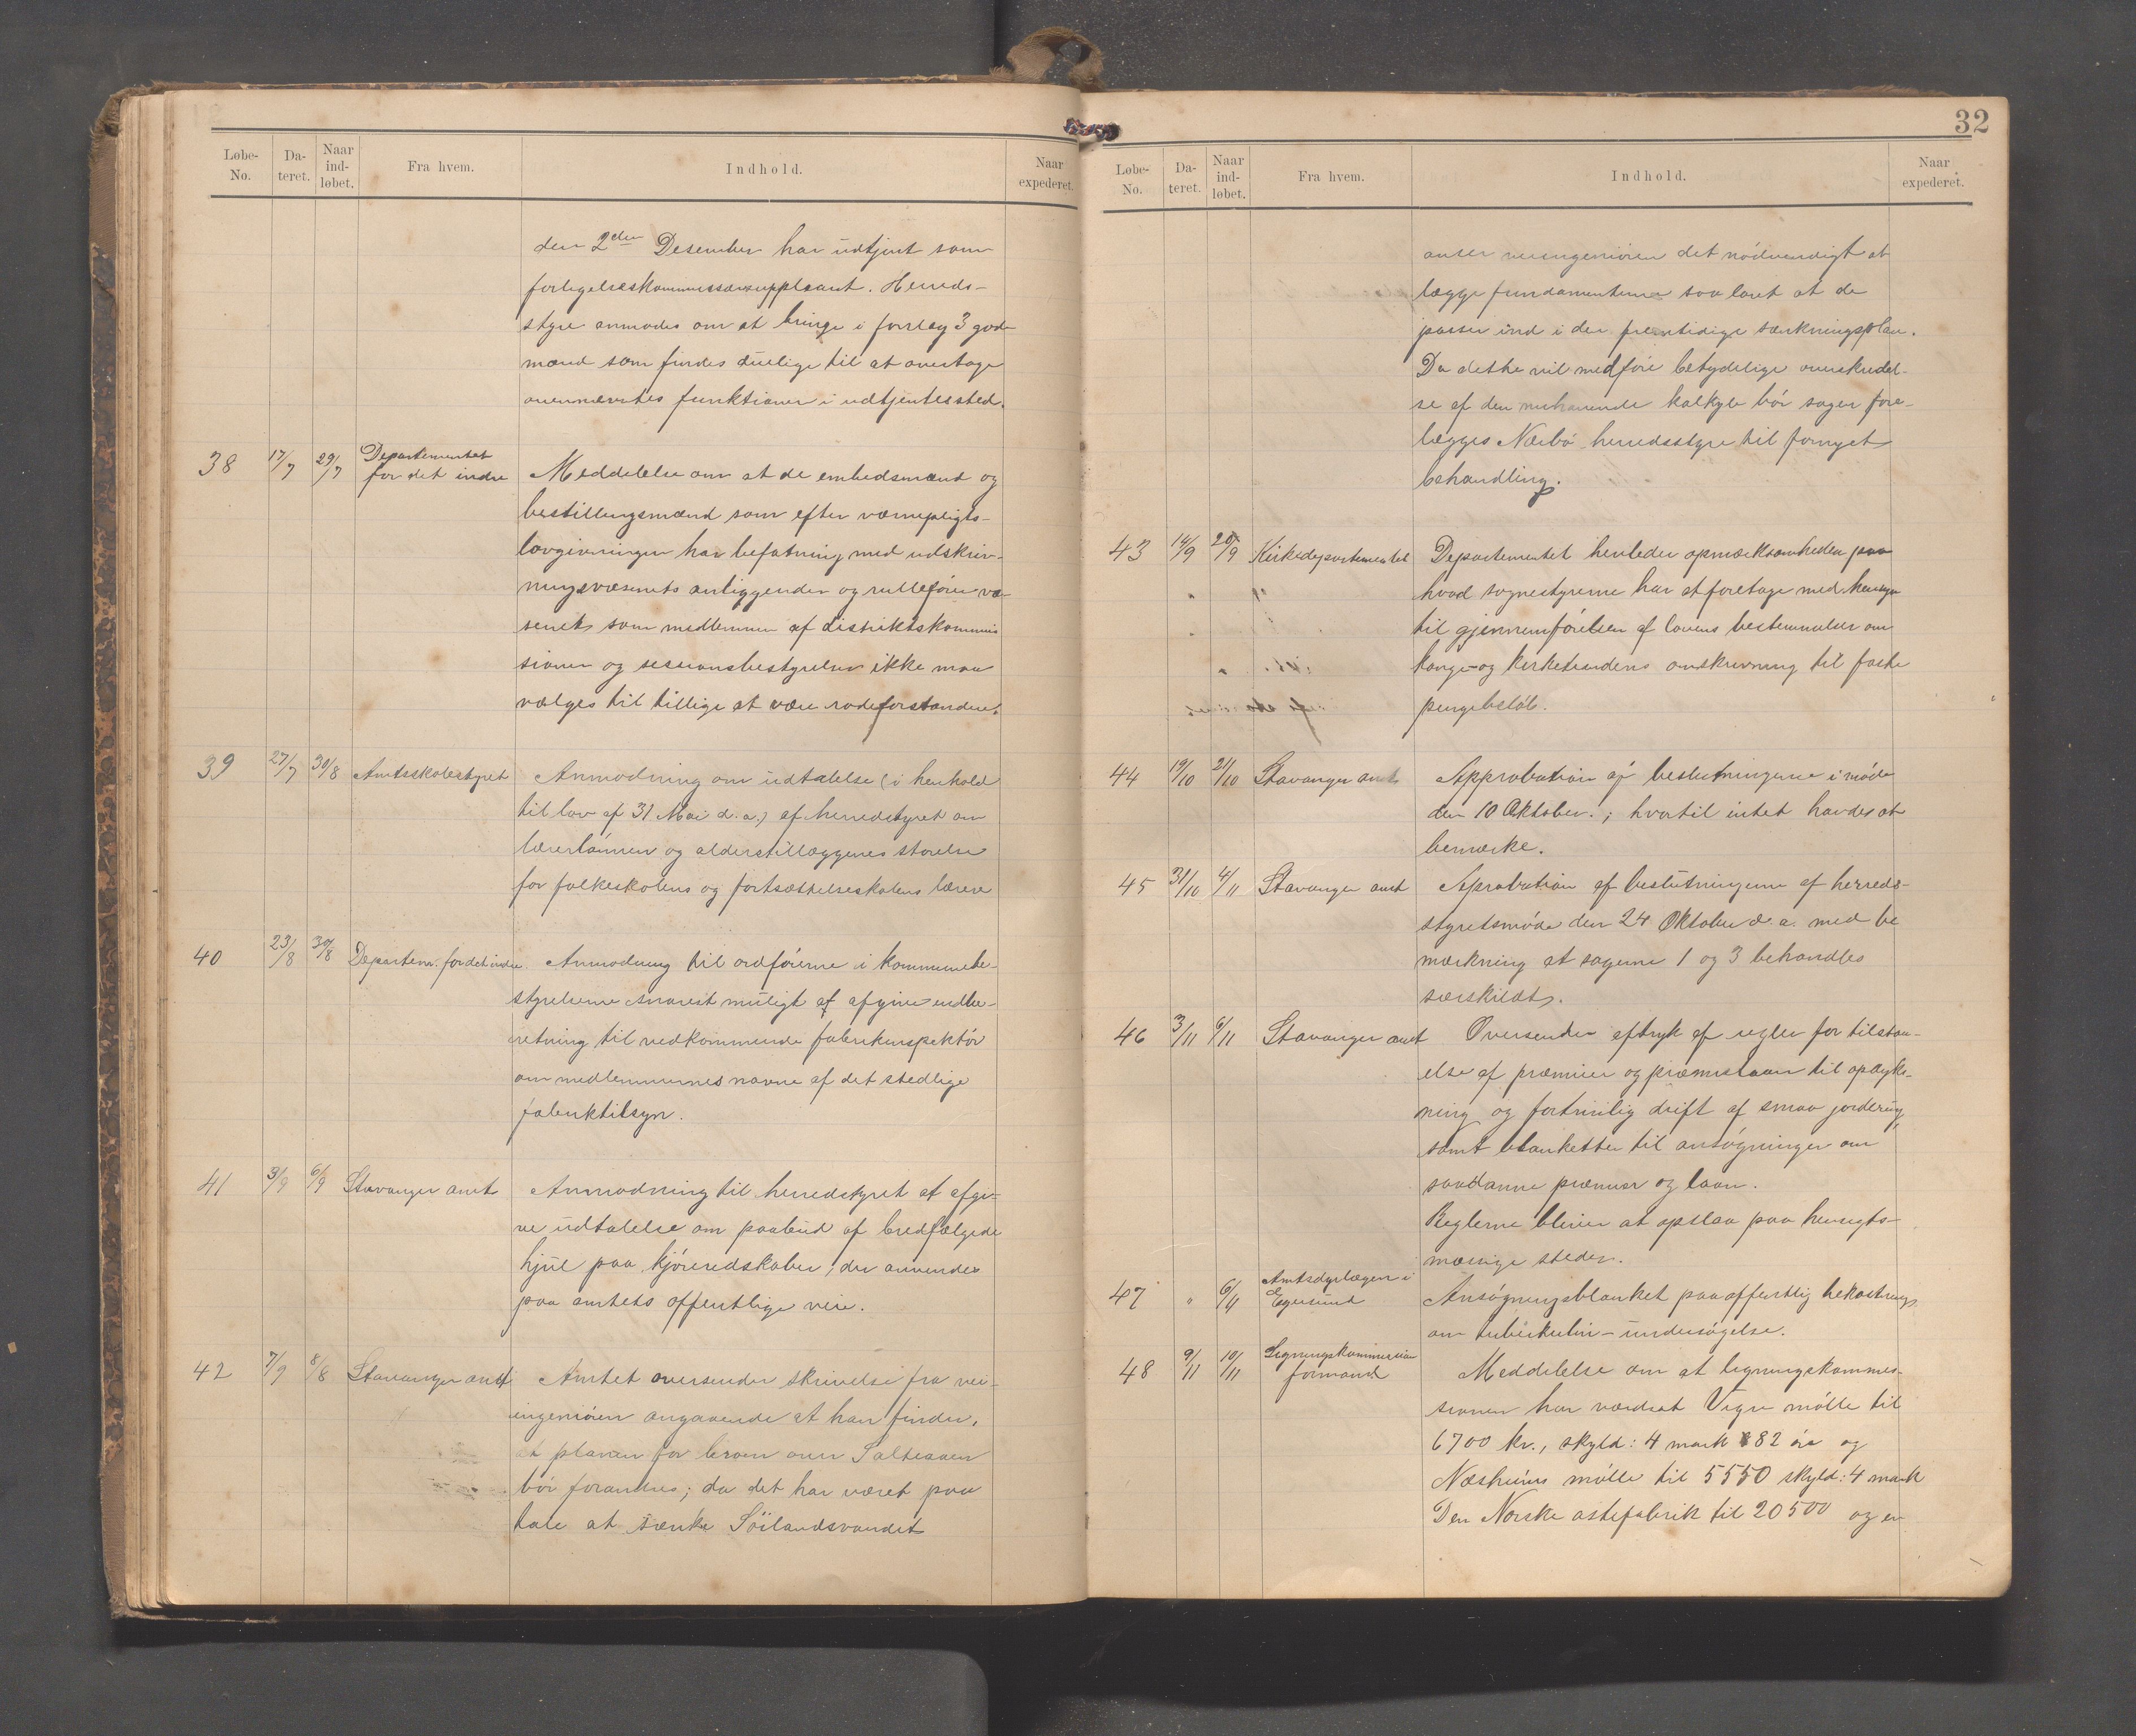 Løbe-No. Da-teret. Naar ind-løbet. Fra hvem. Indhold. Naar expederet.
den 2den Desember har udtjent som
forligelseskommissærsuppleant. Herreds-
styre anmodes om at bringe i forslag 3 gode
mænd som findes duelige til at overtage
ovennævntes funktioner i udtjentessted.
38 17/7 29/7 Departementet
for det indre Meddelelse om at de embedsmænd og
bestillingsmænd som efter værnepligts-
lovgivningen har befatning med udskriv-
ningsvæsenets anliggender og rulleførervæ-
senets som medlemmer af distriktskommis
sioner og sessionsbestyrelser ikke maa
vælges til tillige at være rodeforstandere.
39 27/7 30/8 Amtsskolestyret Anmodning om udtalelse (i henhold
til lov af 31 Mai d.a.) af herredstyret om
lærerlønnen og alderstillæggenes størelse
for folkeskolens og fortsættelseskolens lærere
40 23/8 30/8 Departem. for det indre Anmodning til ordførerne i kommunebe-
styrelserne snarest muligt at afgive indbe-
retning til vedkommende fabrikinspektør
om medlemmernes navne af det stedlige
fabriktilsyn.
41 3/9 6/9 Stavanger amt Anmodning til herredstyret at afgi-
ve udtalelse om paabud af bredfælgede
hjul paa kjøreredskaber, der anvendes
paa amtets offentlige veie.
42 7/9 8/8 Stavanger amt Amtet oversender skrivelse fra vei-
ingeniøren angaaende at han finder,
at planen for broen over Salteaaen
bør forandres; da det har været paa
tale at sænke Söilandsvandet
32
Løbe-No. Da-teret. Naar ind-løbet. Fra hvem. Indhold. Naar expederet.
anser veiingeniøren det nødvendigt at
lægge fundamenterne saa lavt at de
passer ind i den fremtidige sænkningsplan.
Da dette vil medføre betydelige overskridel-
se af den nuhavende kalkyle bør sagen fore-
lægges Nærbø herredsstyre til fornyet
behandling.
43 14/9 20/9 Kirkedepartementet Departementet henleder opmærksomheden paa
hvad sognestyrerne har at foretage med hensyn
til gjennemførelsen af lovens bestemmelser om
konge- og kirketiendens omskrivning til faste
pengebeløb.
44 19/10 21/10 Stavanger amt Approbation af beslutningerne i møde
den 10 Oktober.; hvortil intet havdes at
bemærke.
45 31/10 4/11 Stavanger amt Aprobation af beslutningerne af herreds-
styretsmøde den 24 Oktober d.a. med be
mærkning at sagerne 1 og 3 behandles
særskildt.
46 3/11 6/11 Stavanger amt Oversender aftryk af regler for tilstaa-
else af præmier og præmielaan til opdyrk-
ning og fortrinlig drift af smaa jordbrug,
samt blanketter til ansøgninger om
saadanne præmier og laan.
Reglerne bliver at opslaa paa hensigts-
mæssige steder.
47 " 6/11 Amtsdyrlægen i
Egersund Ansøgningsblanket paa offentlig bekostning
om tuberkulin-undersøgelse.
48 9/11 10/11 Ligningskommission
formand Meddelelse om at ligningskommis-
sionen har værdsat Vigre mølle til
6700 kr., skyld: 4 mark 82 øre og
Næsheims mølle til 5550 skyld: 4 mark
Den Norske ostefabrik til 20500 og er